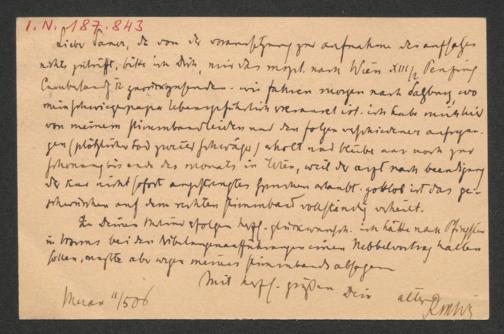 I. N. 187.843
Lieber Bauer, da von der voraussetzung zur aufnahme des aufsatzes
nichts zutrifft, bitte ich Dich, mir das mspt. nach Wien XIII/2 Penzing
Cumberlandstr. zurückzusenden. wir fahren morgen nach Salzburg, wo
mein schwiegerpapa lebensgefährlich erkrankt ist. ich habe mich hier
von meinem stimmbandleiden und den folgen verschiedener aufregun-
gen (plötzlicher tod zweier schwäger) erholt und bleibe nur noch zur
schonung bis ende des monats in Wien, weil der arzt nach beendigung
der kur nicht sofort angestrengtes sprechen erlaubt. gottlob ist das ge-
schwürchen auf dem rechten stimmband vollständig verheilt.
Zu deinen erfolgen herzl. glückwunsch. ich hätte nach Pfingsten
in Worms bei den Nibelungenaufführungen einen Hebbelvortrag halten
sollen, musste aber wegen meines stimmbands absagen.
Mit herzl. grüßen Dein alter
Meran 11/5 06 RMW